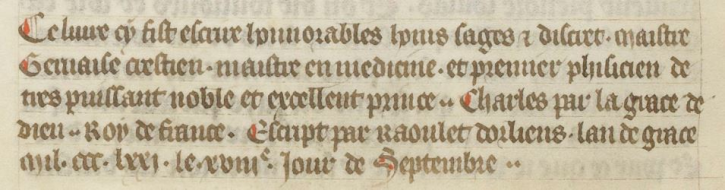 Ce liure cy fist escrire honnorables homs sages ⁊ discret · maistre
Geruaise crestien · maistre en medicine · et premier phisicien de
tres puissant noble et excellent prince ·· Charles par la grace de
dieu ·· Roy de france · Escript par Raoulet dorliens · lan de grace
mil · ccc · lxxi · le · xviiiᵉ · Jour de Septembre ··